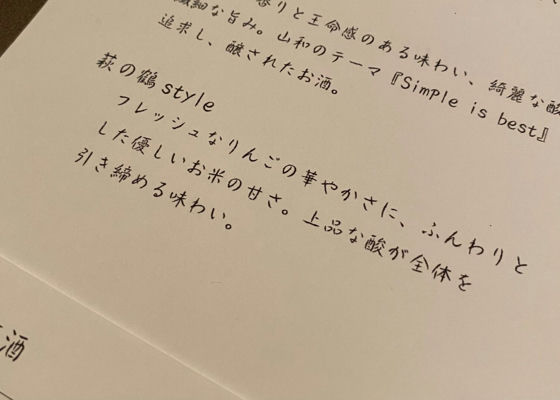 香りと王命感のある味わい、綺麗な酸
繊細な旨み。山和のテーマ『Simple is best』
追求し、醸されたお酒。
萩の鶴 style
フレッシュなりんごの華やかさに、ふんわりと
した優しいお米の甘さ。上品な酸が全体を
引き締める味わい。
酒